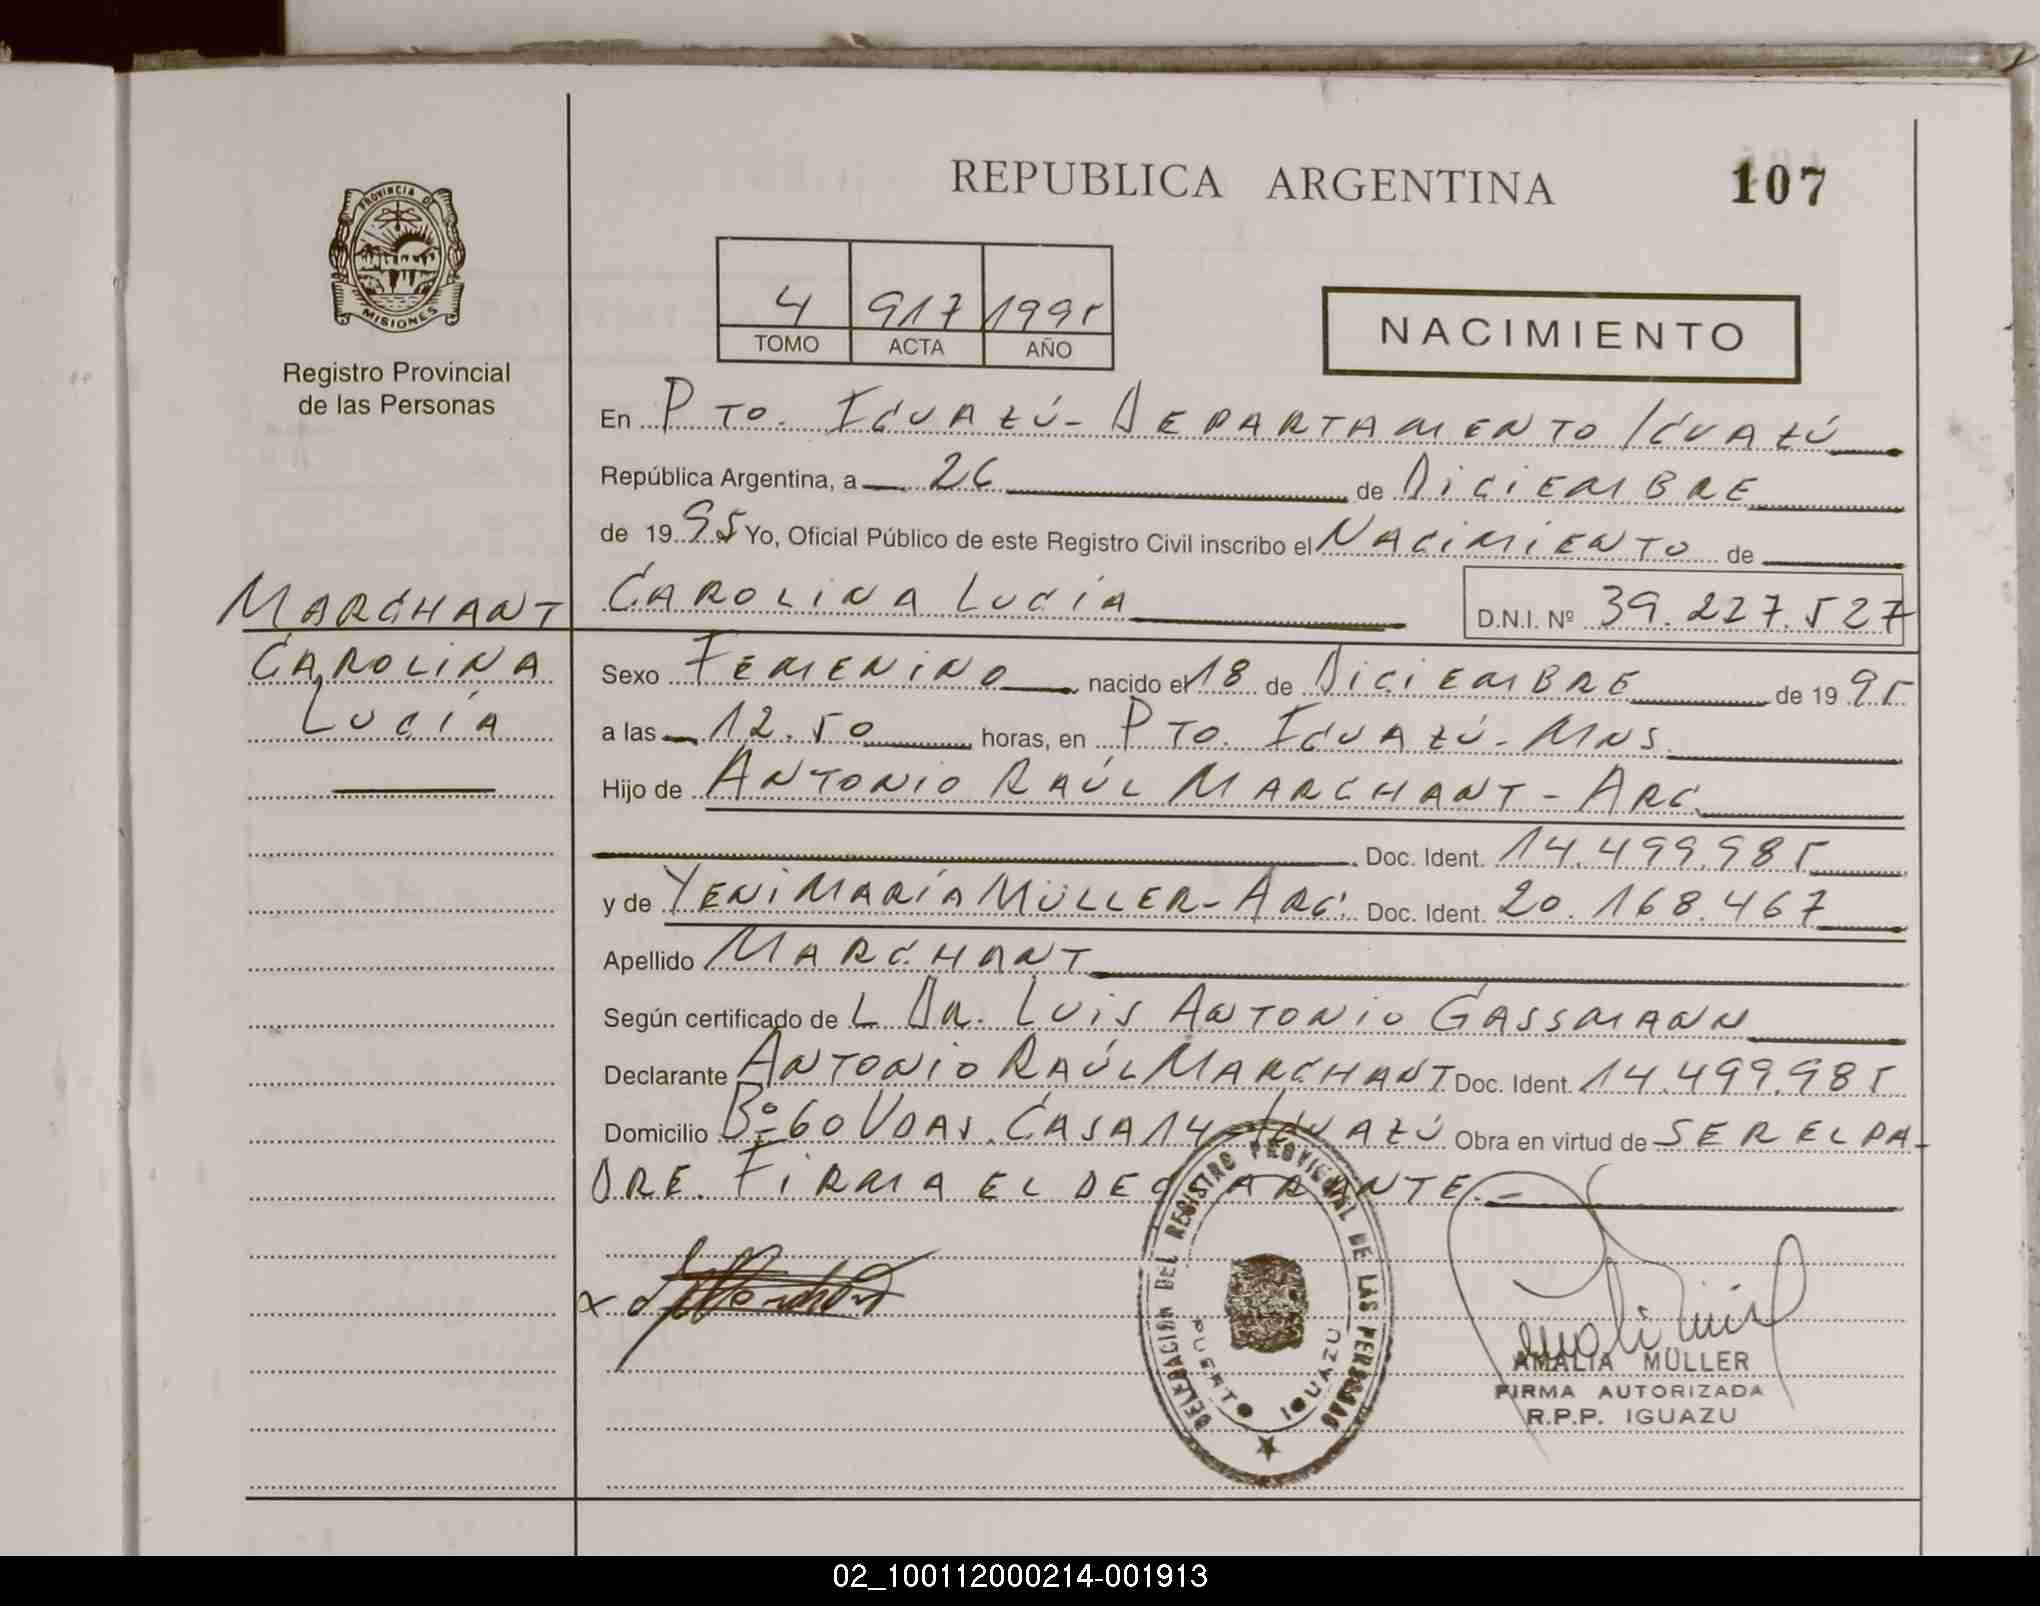 REPUBLICA ARGENTINA
107
PROVINCIA DE
MISIONES
Registro Provincial
de las Personas
4 917 1995
TOMO ACTA AÑO
NACIMIENTO
En PTO. IGUAZÚ - DEPARTAMENTO IGUAZÚ
República Argentina, a 26 de DICIEMBRE
de 19 95 Yo, Oficial Público de este Registro Civil inscribo el NACIMIENTO de
MARCHANT
CAROLINA
LUCÍA
CAROLINA LUCÍA D.N.I. Nº 39.227.527
Sexo FEMENINO nacido el 18 de DICIEMBRE de 19 95
a las 12.50 horas, en PTO. IGUAZÚ - MNS.
Hijo de ANTONIO RAÚL MARCHANT - ARG.
Doc. Ident. 14.499.985
y de YENI MARÍA MÜLLER - ARG. Doc. Ident. 20.168.467
Apellido MARCHANT
Según certificado de L DR. LUIS ANTONIO GASSMANN
Declarante ANTONIO RAÚL MARCHANT Doc. Ident. 14.499.985
Domicilio Bº 60 VDAS. CASA 14 - IGUAZÚ Obra en virtud de SER EL PA-
DRE. FIRMA EL DECLARANTE. -
DELEGACION DEL REGISTRO PROVINCIAL DE LAS PERSONAS
PUERTO IGUAZU
AMALIA MÜLLER
FIRMA AUTORIZADA
R.P.P. IGUAZU
02_100112000214-001913